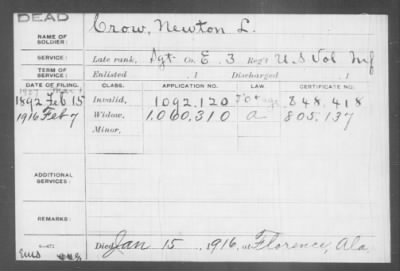 DEAD
NAME OF SOLDIER: Crow, Newton L.
SERVICE: Late rank, Sgt Co. E. 3 Reg't U.S Vol Inf
TERM OF SERVICE: Enlisted , 1 Discharged , 1
DATE OF FILING. CLASS. APPLICATION NO. LAW. CERTIFICATE NO.
1892 Feb 15 Invalid, 1092.120 848.418
1916 Feb 7 Widow, 1.060.310 a 805.137
Minor,
ADDITIONAL SERVICES:
REMARKS:
Died Jan 15, 1916, at Florence, Ala.